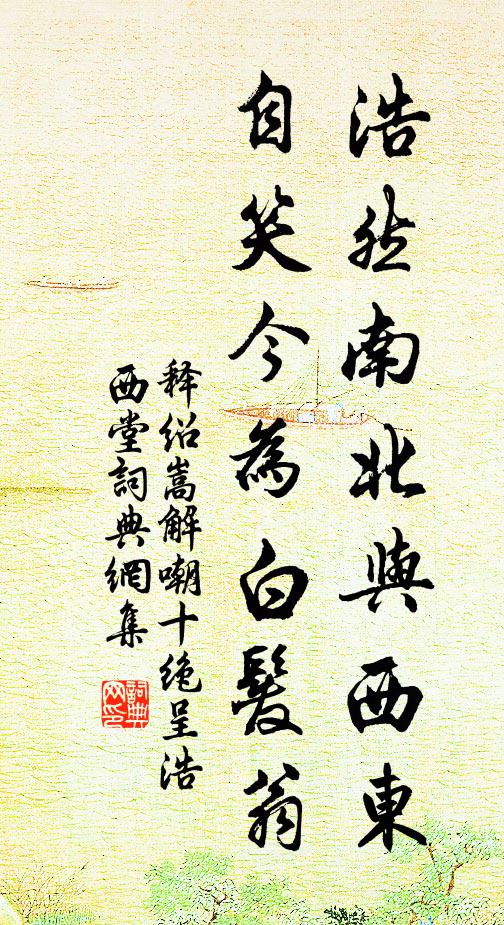 浩然南北與西東
自笑今為白髮翁
释绍嵩解嘲十绝呈浩
西堂詞典網集
詞典
网印